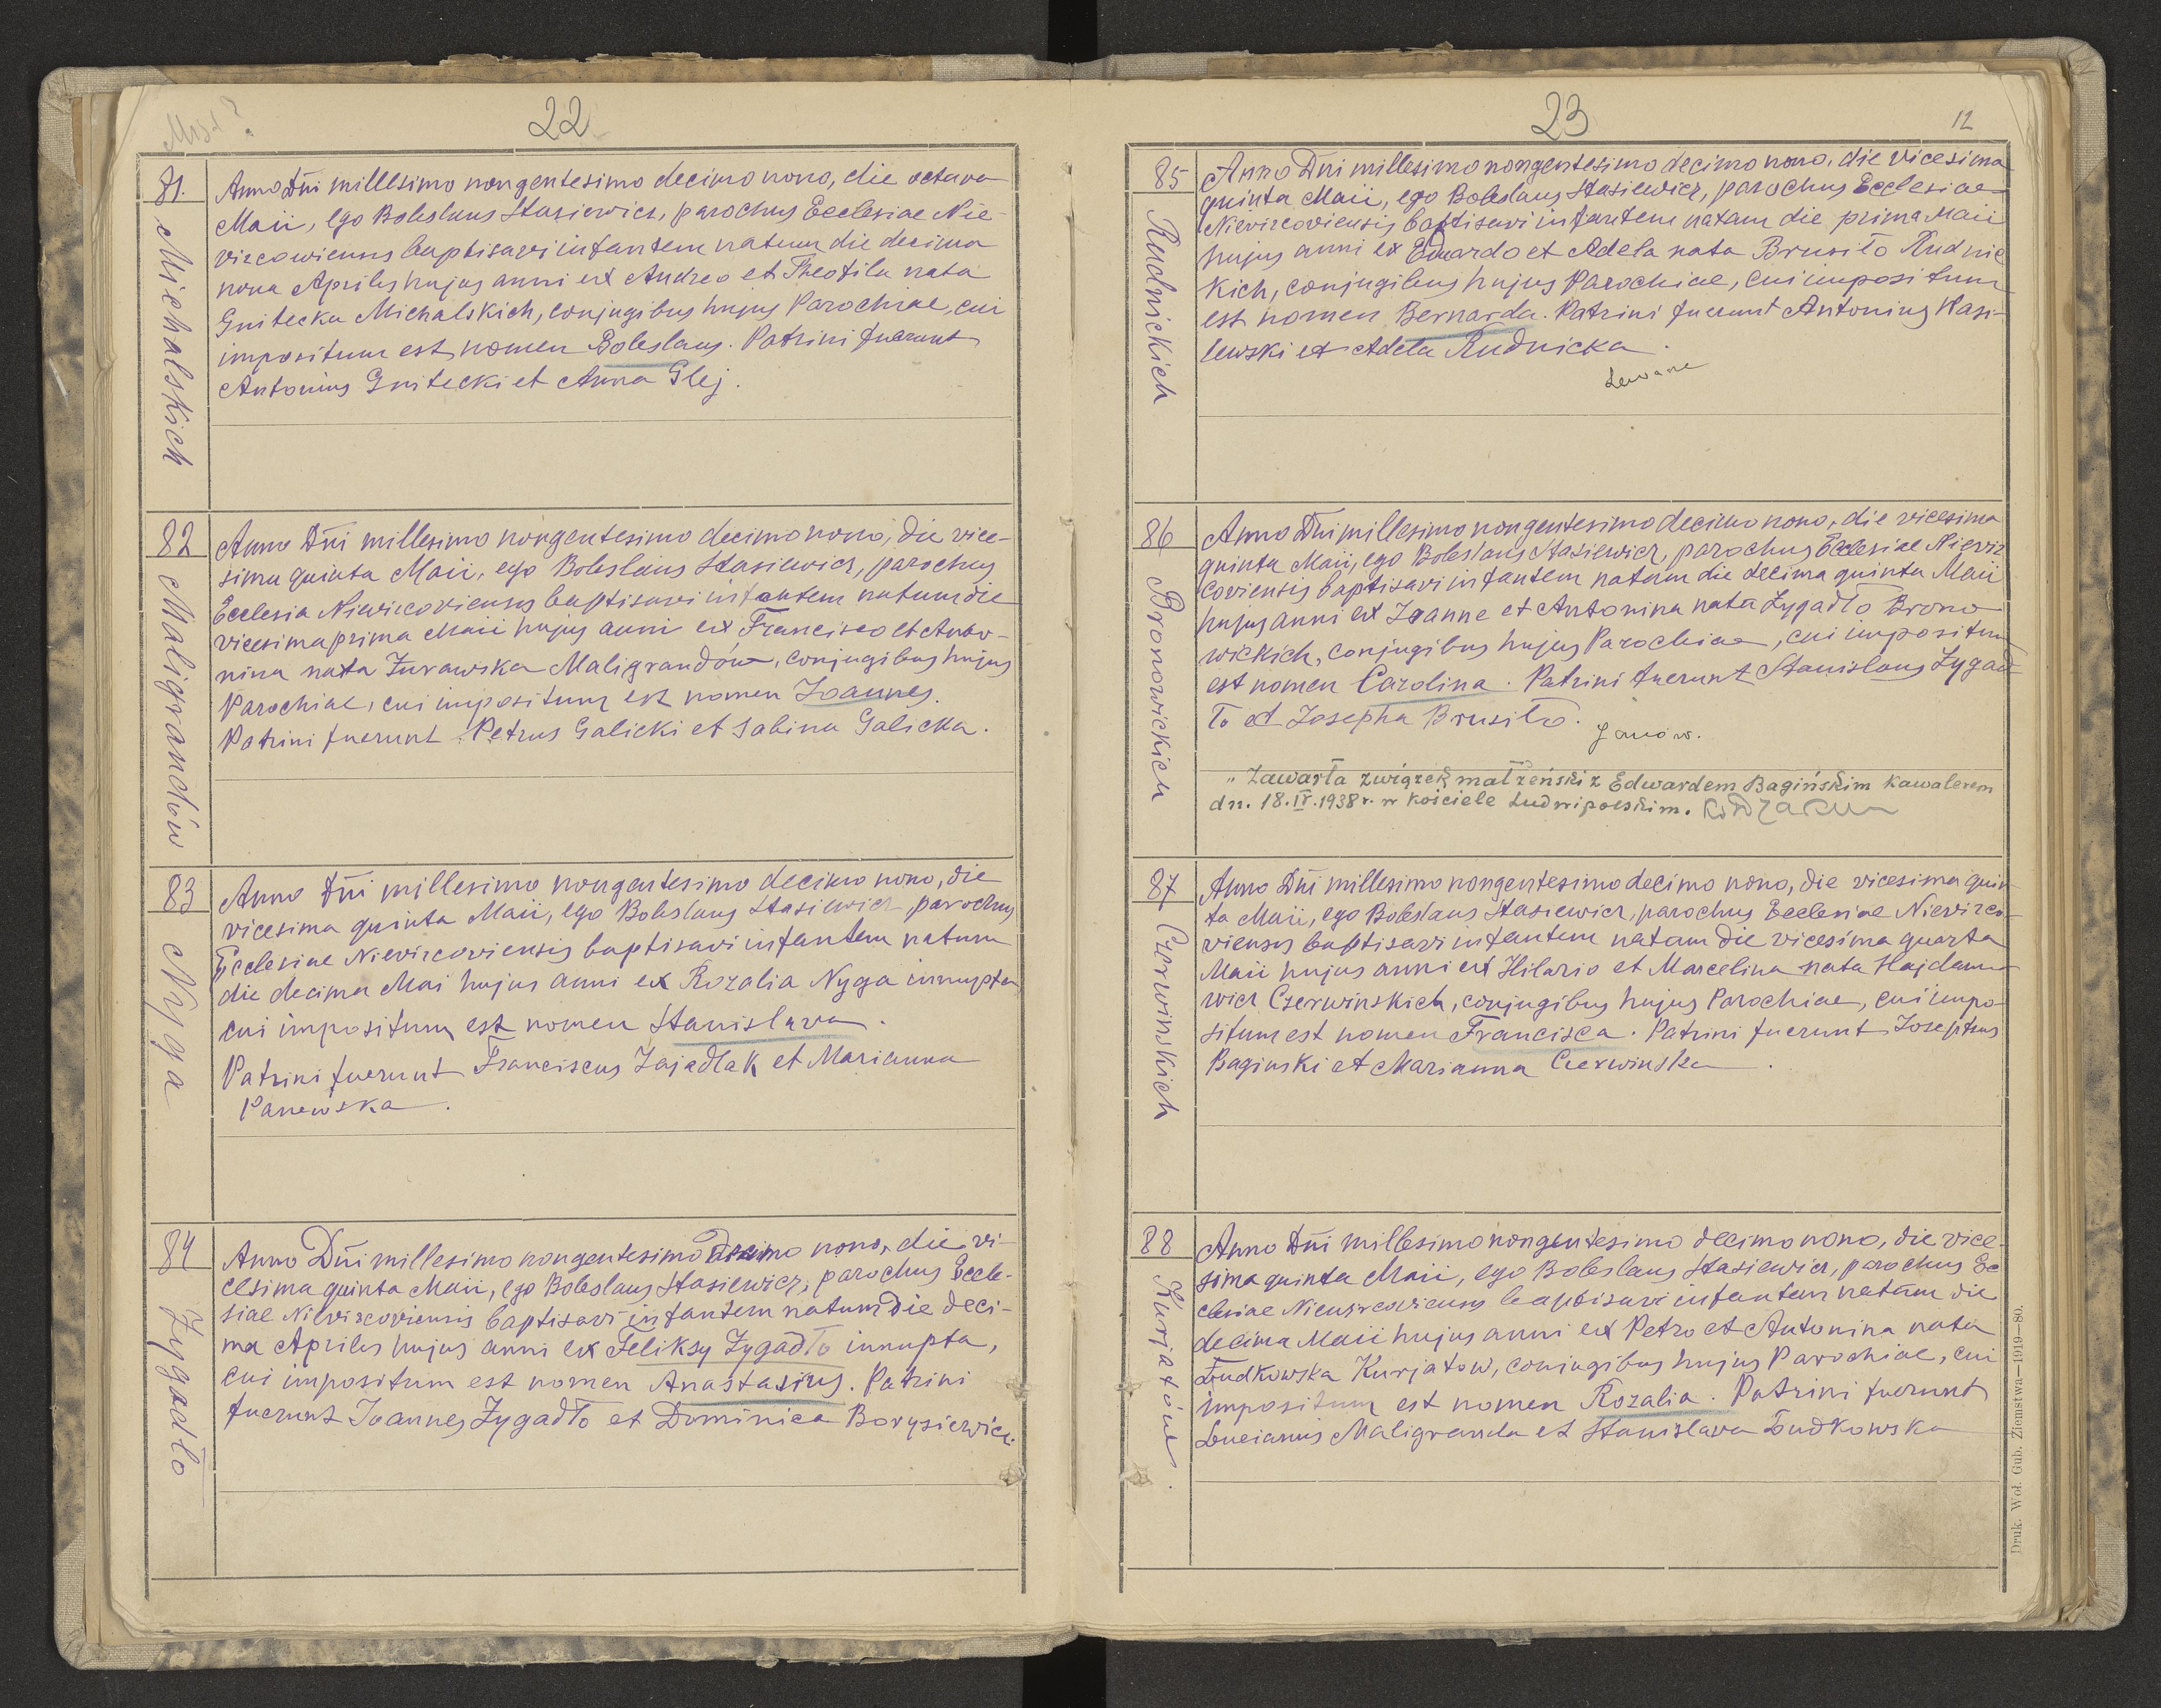 22
81.
Michalskich
Anno Dni millesimo nongentesimo decimo nono, die octava
Maii, ego Boleslaus Stasiewicz, parochus Ecclesiae Nie-
vircowiensis baptisavi infantem natum die decima
nona Aprilis hujus anni ex Andreo et Theofila nata
Gnitecka Michalskich, conjugibus hujus Parochiae, cui
impositum est nomen Boleslaus. Patrini fuerunt
Antonius Gnitecki et Anna Glej.
82
Maligrandów
Anno Dni millesimo nongentesimo decimo nono, die vice-
sima quinta Maii, ego Boleslaus Stasiewicz, parochus
Ecclesia Nievircoviensis baptisavi infantem natum die
vicesima prima Maii hujus anni ex Francisco et Anto-
nina nata Żurawska Maligrandów, conjugibus hujus
Parochiae, cui impositum est nomen Joannes.
Patrini fuerunt Petrus Galicki et Sabina Galicka.
83
Nyga
Anno Dni millesimo nongentesimo decimo nono, die
vicesima quinta Maii, ego Boleslaus Stasiewicz parochus
Ecclesiae Nievircoviensis baptisavi infantem natum
die decima Mai hujus anni ex Rozalia Nyga innupta
cui impositum est nomen Stanislava.
Patrini fuerunt Franciscus Zajadlak et Marianna
Panewska.
84
Zygadło
Anno Dni millesimo nongentesimo decimo nono, die vi-
cesima quinta Maii, ego Boleslaus Stasiewicz, parochus Eccle-
siae Nievircoviensis baptisavi infantem natum die deci-
ma Aprilis hujus anni ex Feliksy Zygadło innupta,
cui impositum est nomen Anastasius. Patrini
fuerunt Joannes Zygadło et Dominica Borysiewicz.
23
12
85
Rudnickich
Anno Dni millesimo nongentesimo decimo nono, die vicesima
quinta Maii, ego Boleslaus Stasiewicz, parochus Ecclesiae
Nievircoviensis baptisavi infantem natam die prima Maii
hujus anni ex Eduardo et Adela nata Brusiło Rudnic
kich, conjugibus hujus Parochiae, cui impositum
est nomen Bernarda. Patrini fuerunt Antonius Wasi-
lewski et Adela Rudnicka.
86
Bronowickich
Anno Dni millesimo nongentesimo decimo nono, die vicesima
quinta Maii, ego Boleslaus Stasiewicz, parochus Ecclesiae Nievir
coviensis baptisavi infantem natam die decima quinta Maii
hujus anni ex Joanne et Antonina nata Zygadło Brono
wickich, conjugibus hujus Parochiae, cui impositum
est nomen Carolina. Patrini fuerunt Stanislaus Zygad
ło et Josepha Brusiło.
Janów.
„Zawarła związek małżeński z Edwardem Bagińskim kawalerem
dn. 18.IV.1938 r. w kościele Ludwipolskim.
87
Czerwinskich
Anno Dni millesimo nongentesimo decimo nono, die vicesima quin
ta Maii, ego Boleslaus Stasiewicz, parochus Ecclesiae Nievirco-
viensis baptisavi infantem natam die vicesima quarta
Maii hujus anni ex Hilario et Marcelina nata Hajdamo
wicz Czerwinskich, conjugibus hujus Parochiae, cui impo-
situm est nomen Francisca. Patrini fuerunt Josephus
Baginski et Marianna Czerwinska.
88
Kurjatów.
Anno Dni millesimo nongentesimo decimo nono, die vice-
sima quinta Maii, ego Boleslaus Stasiewicz, parochus Ec
clesiae Nievircoviensis baptisavi infantem natam die
decima Maii hujus anni ex Petro et Antonina nata
Dudkowska Kurjatow, conjugibus hujus Parochiae, cui
impositum est nomen Rozalia. Patrini fuerunt
Lucianus Maligranda et Stanislava Dudkowska
Druk. Woł. Gub. Ziemstwa—1919—80.